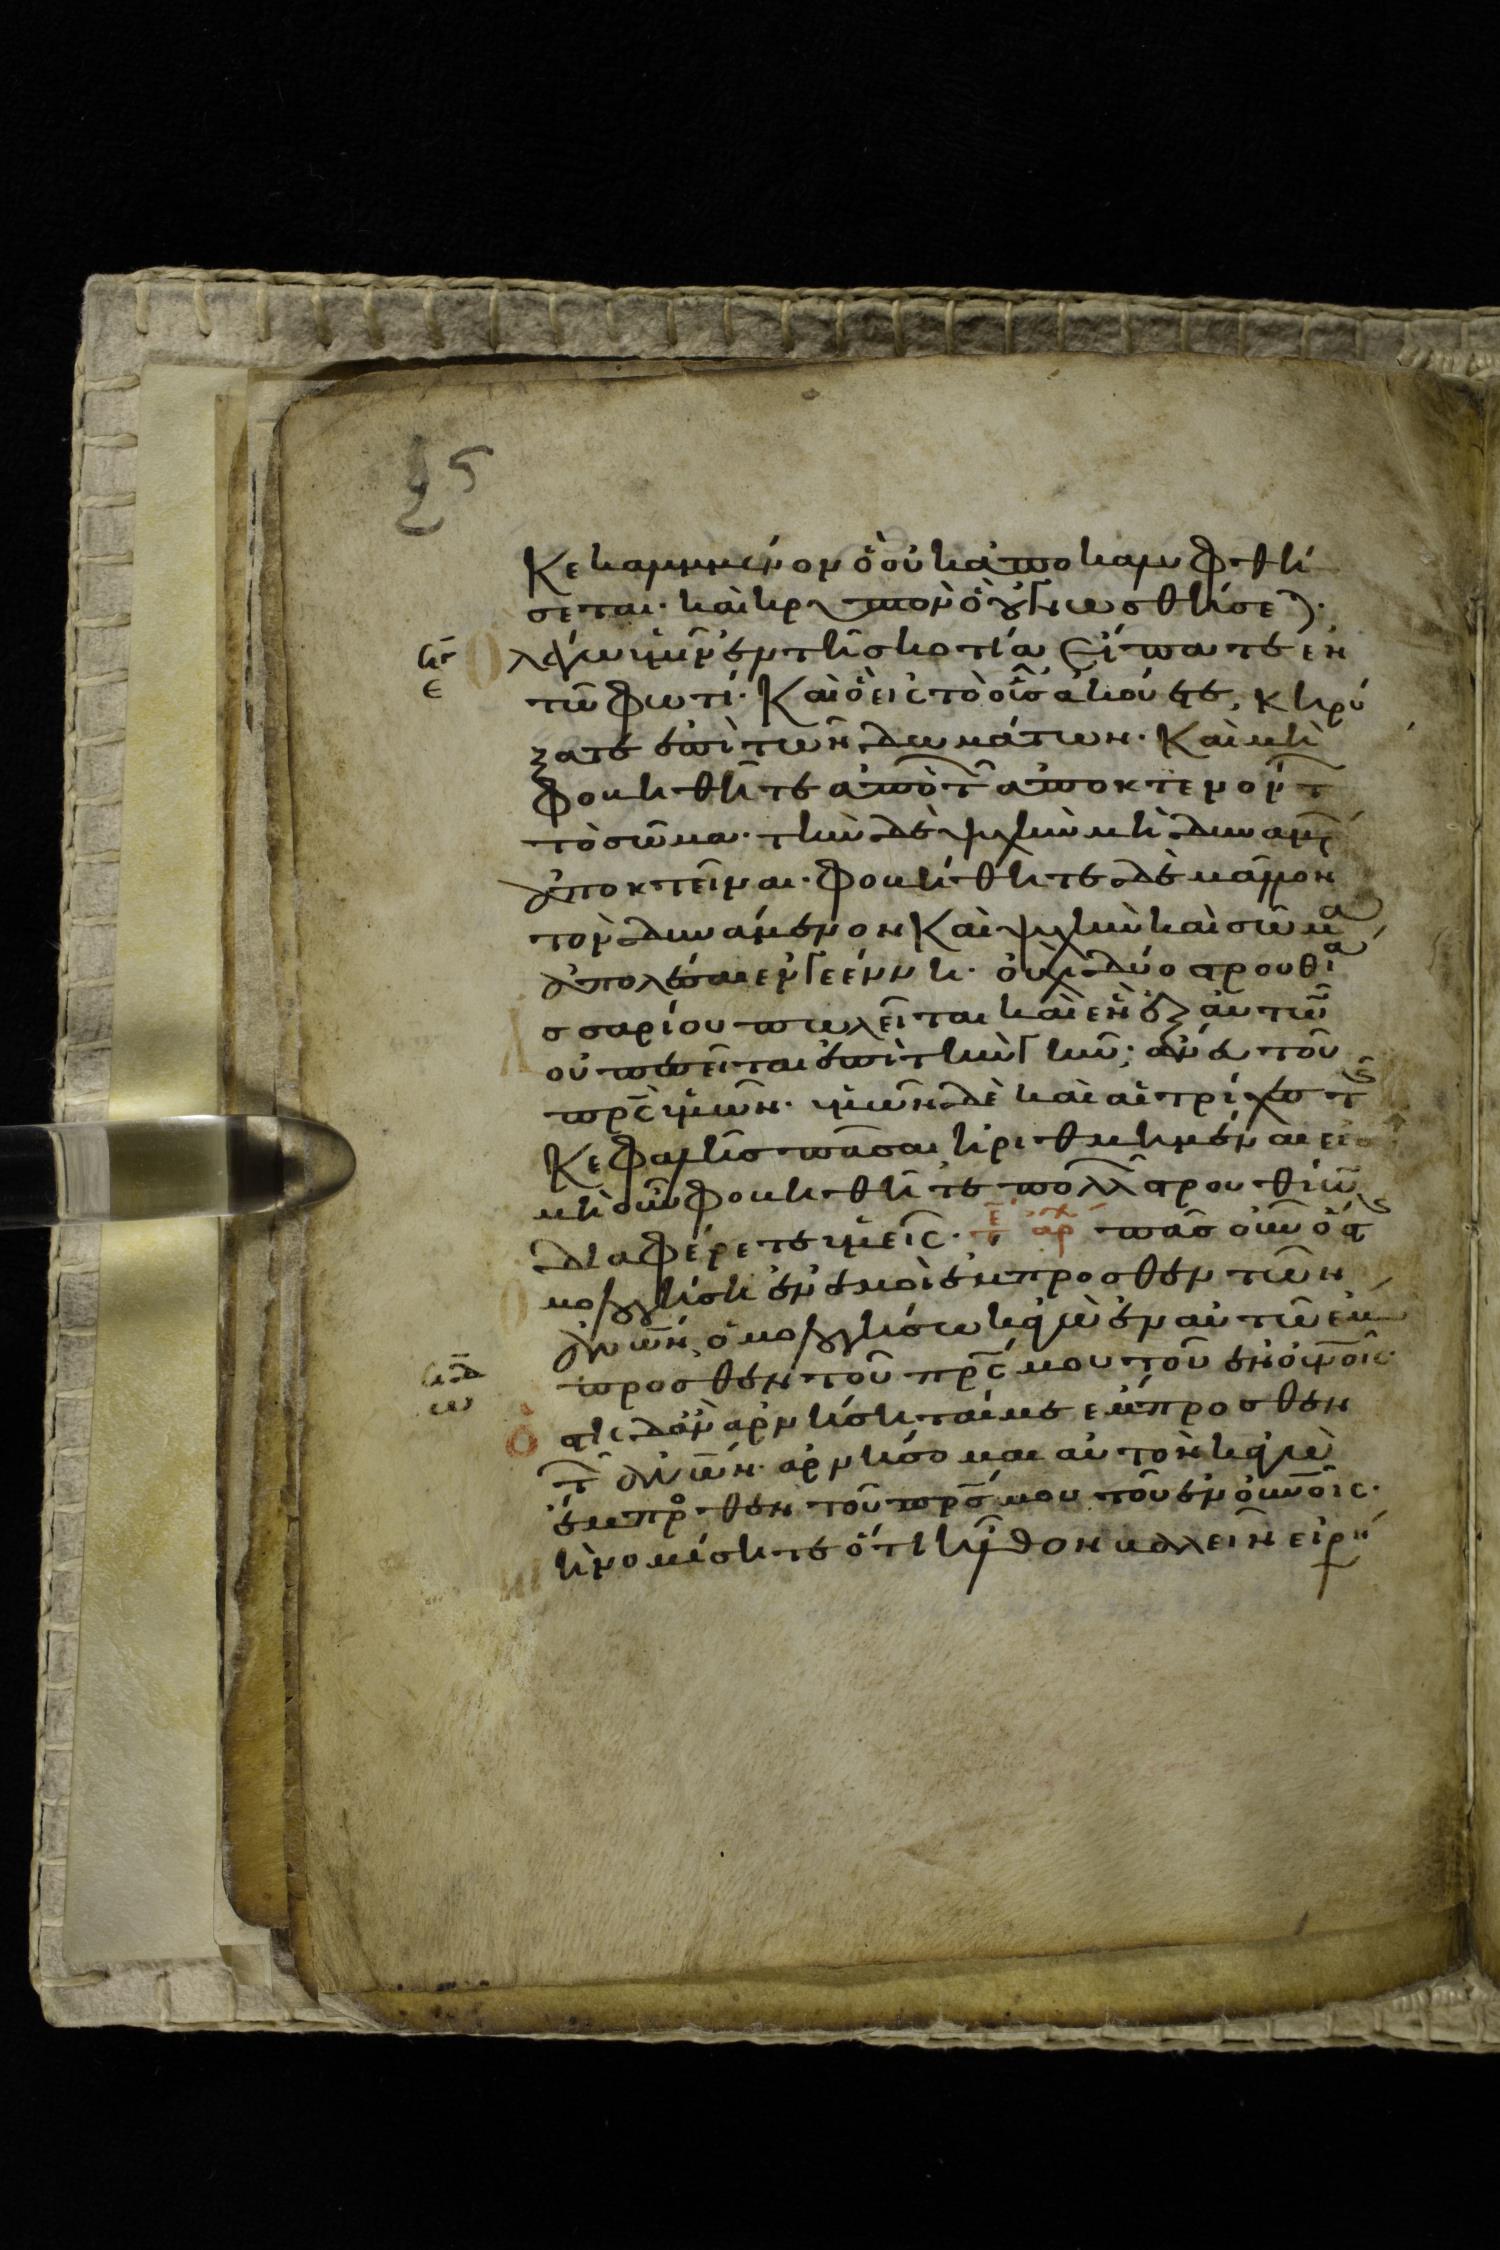 25
Κεκαλυμμένον ὃ οὐκ ἀποκαλυφθή
σεται· καὶ κρυπτὸν ὃ οὐ γνωσθήσεται·
Ὃ λέγω ὑμῖν ἐν τῆ σκοτία εἴπατε ἐν
τῶ φωτί· Καὶ ὃ εἰς τὸ οὖς ἀκούετε, κηρύ
ξατε ἐπὶ τῶν δωμάτων· Καὶ μὴ
φοβηθῆτε ἀπὸ τῶν ἀποκτενόντ
τὸ σῶμα· τὴν δὲ ψυχὴν μὴ δυναμέν
ἀποκτεῖναι· φοβήθητε δὲ μᾶλλον
τὸν δυνάμενον Καὶ ψυχὴν καὶ σῶμα
ἀπολέσαι ἐν γεέννη· οὐχὶ δύο στρουθία
ἀσσαρίου πωλεῖται καὶ ἓν ἐξ αὐτῶν
οὐ πεσεῖται ἐπὶ τὴν γῆν· ἄνευ τοῦ
πρς ὑμῶν· ὑμῶν δὲ καὶ αἱ τρίχες τῆς
Κεφαλῆς πᾶσαι ἠριθμημέναι εἰσ
μὴ οὖν φοβηθῆτε πολλῶν στρουθίων
διαφέρετε ὑμεῖς· τε αρχ πᾶς οὖν ὅστις
Ὁμολογήση ἐν ἐμοὶ ἔμπροσθεν τῶν
ἀνων, ὁμολογήσω κἀγὼ ἐν αὐτῶ ἔμ
προσθεν τοῦ πρς μου τοῦ ἐν οὐνοῖς·
Ὅστις δ' ἂν ἀρνήσηταί με ἔμπροσθεν
τῶν ἀνων· ἀρνήσομαι αὐτὸν κἀγὼ
ἔμπροσθεν τοῦ πρς μου τοῦ ἐν οὐνοῖς·
Μὴ νομίσητε ὅτι ἦλθον βαλεῖν εἰρή